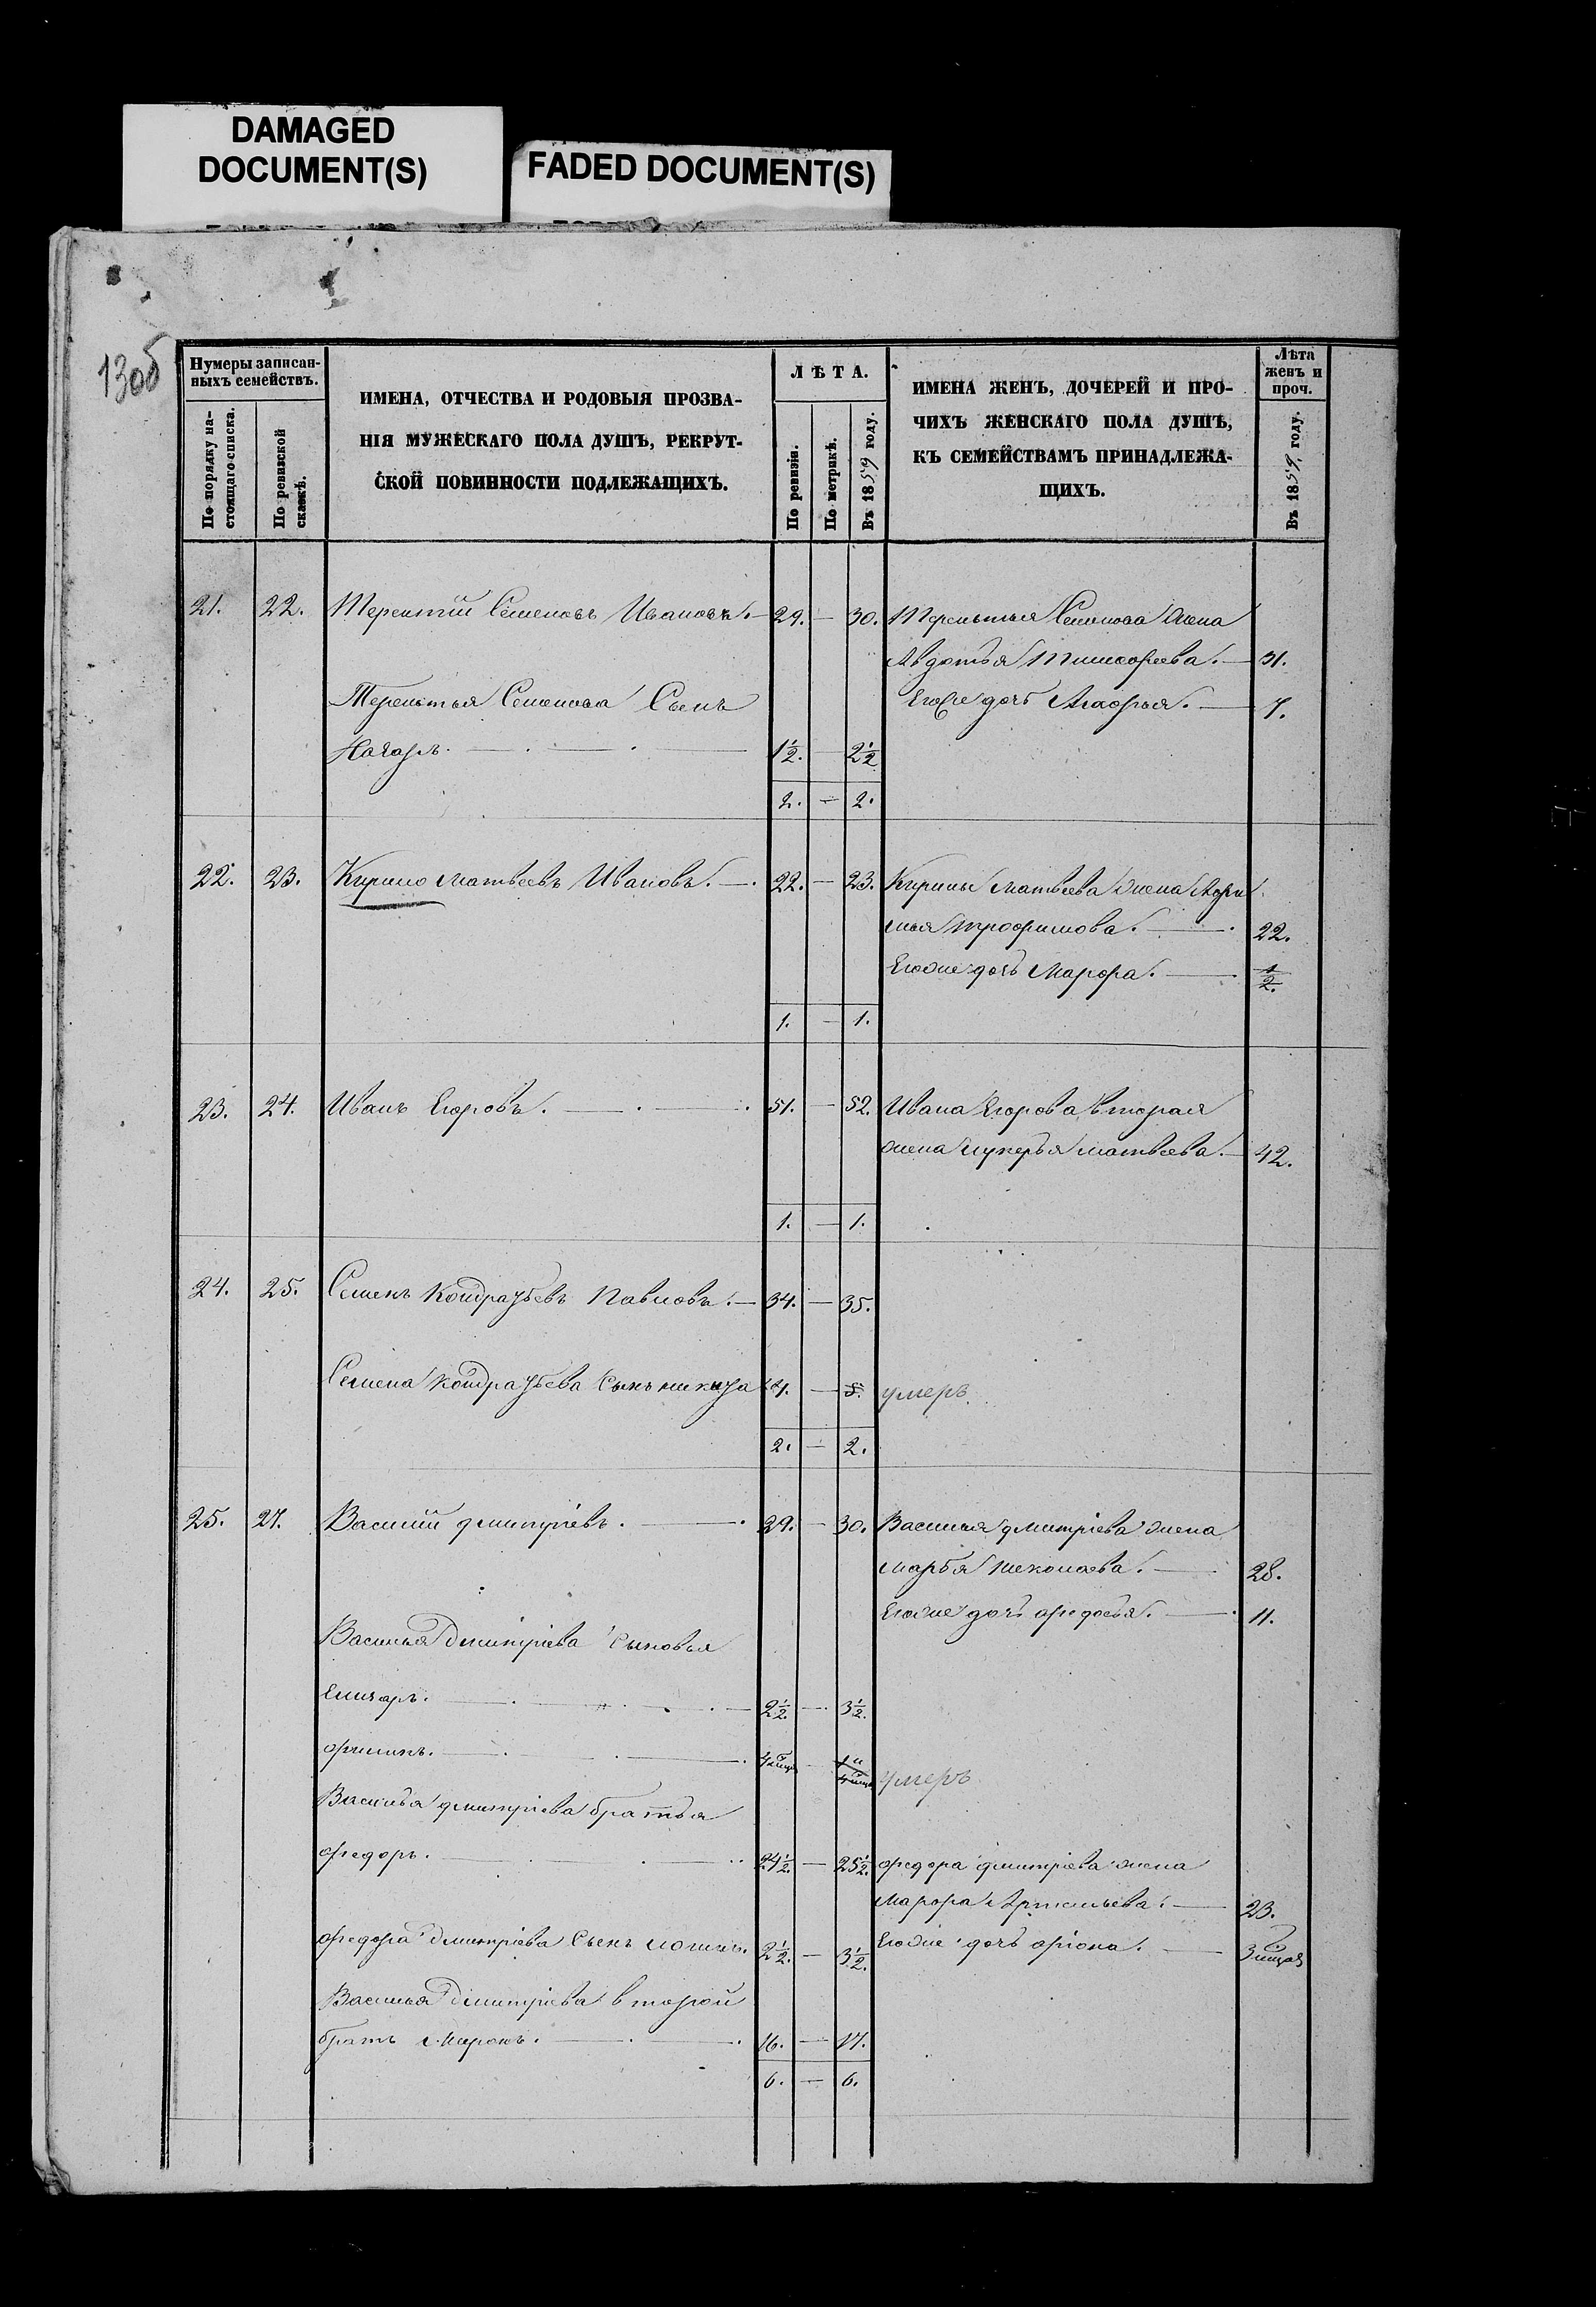 DAMAGED
DOCUMENT(S)
FADED DOCUMENT(S)
130б
Нумеры записан-
ныхъ семействъ.
По порядку на-
стоящаго списка.
По ревизской
сказкѣ.
ИМЕНА, ОТЧЕСТВА И РОДОВЫЯ ПРОЗВА-
НІЯ МУЖЕСКАГО ПОЛА ДУШЪ, РЕКРУТ-
СКОЙ ПОВИННОСТИ ПОДЛЕЖАЩИХЪ.
ЛѢТА.
По ревизіи.
По метрикѣ.
Въ 1859 году.
ИМЕНА ЖЕНЪ, ДОЧЕРЕЙ И ПРО-
ЧИХЪ ЖЕНСКАГО ПОЛА ДУШЪ,
КЪ СЕМЕЙСТВАМЪ ПРИНАДЛЕЖА-
ЩИХЪ.
Лѣта
женъ и
проч.
Въ 1859, году.
21. 22. Терентій Семеновъ Ивановъ. — 29. — 30. Терентья Семенова жена
Авдотья Тимофеева. — 31.
Терентья Семенова Сынъ
Егоже дочь Агафья. — 7.
Назаръ. — 1½. — 2½
2. — 2.
22. 23. Кирило Матвеевъ Ивановъ. — 22. — 23. Кирилы Матвеева жена
Трофимова. — 22.
Егоже дочь Марфа. — ½.
1. — 1.
23. 24. Иванъ Егоровъ. — 51. — 52. Ивана Егорова вторая
жена Лукерья Матвеева. — 42.
1. — 1.
24. 25. Семенъ Кондратьевъ Павловъ. — 34. — 35.
Семена Кондратьева Сынъ Никита 4. — 5. умеръ.
2. — 2.
25. 27. Василій Дмитріевъ. — 29. — 30. Василья Дмитріева жена
Марья Николаева. — 28.
Егоже дочь Федосья. — 11.
Василья Дмитріева Сыновья
— 2½. — 3½.
умеръ
Василья Дмитріева братья
Федоръ. — 24½. — 25½. Федора Дмитріева жена
Марфа Артемьева. — 23.
Федора Дмитріева Сынъ 2½. — 3½.
Егоже дочь
Василья Дмитріева второй
братъ Миронъ. — 16. — 17.
6. — 6.